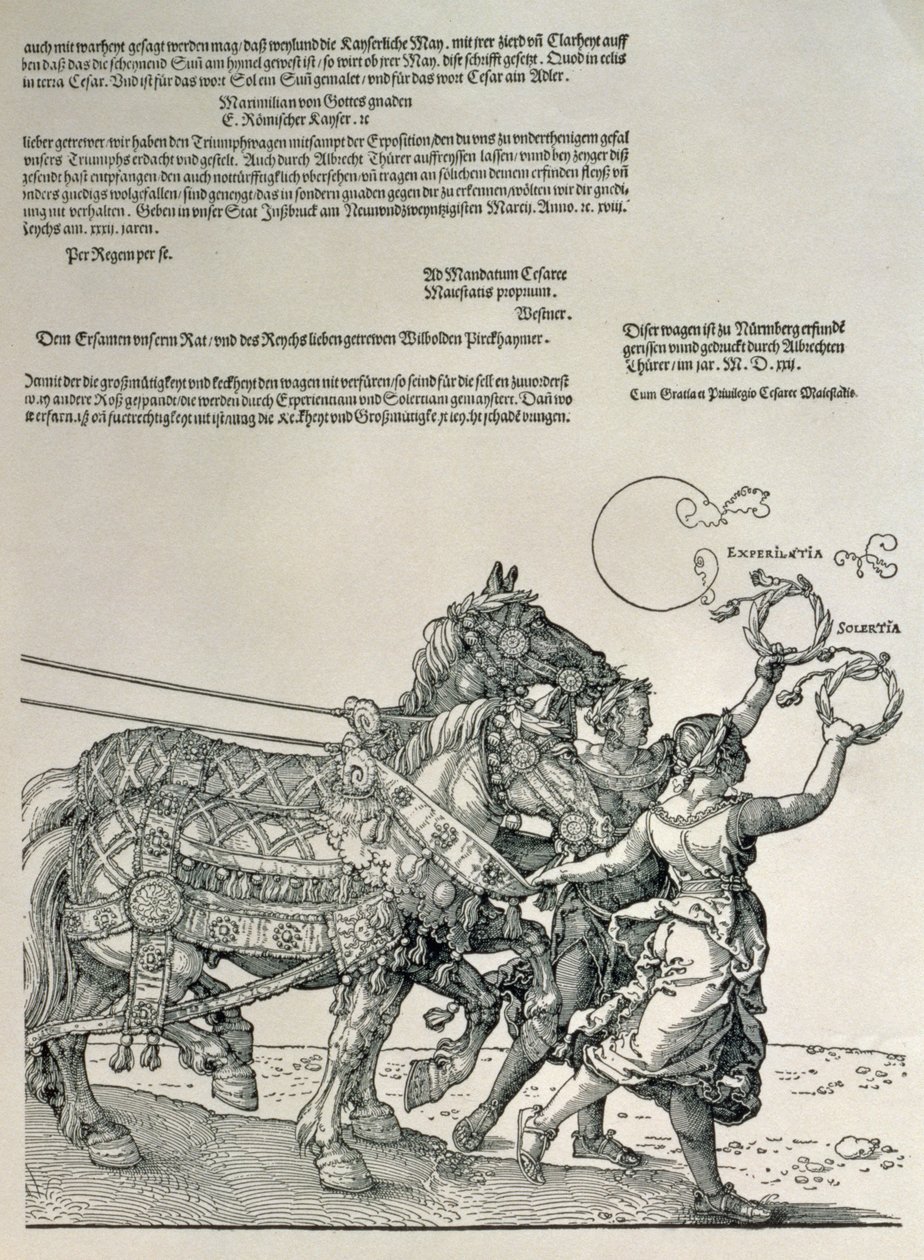 auch mit warheyt gesagt werden mag/daß weylund die Kayserliche May. mit jrer zierd vñ Clarheyt auff
ben daß das die scheynend Suñ am hymel gewest ist/so wirt ob jrer May. dise schrifft gesetzt. Quod in celis
in terra Cesar. Vnd ist für das wort Sol ein Suñ gemalet/vnd für das wort Cesar ain Adler.
Maximilian von Gottes gnaden
E. Römischer Kayser. ꝛc
lieber getrewer/wir haben den Triumphwagen mitsampt der Exposition/den du vns zu vnderthenigem gefal
vnsers Triumphs erdacht vnd gestelt. Auch durch Albrecht Thürer auffreyssen lassen/vnnd bey zeyger diß
gesendt hast entpfangen/den auch nottürfftigklich vbersehen/vñ tragen an sölichem deinem erfinden fleyß vñ
nders gnedigs wolgefallen/sind geneygt/das in sondern gnaden gegen dir zu erkennen/wölten wir dir gnedi-
nung nit verhalten. Geben in vnser Stat Jnßbruck am Neunundzweyntzigisten Marcij. Anno. ꝛc. xviij.
Reychs am. xxxij. jaren.
Per Regem per se.
Ad Mandatum Cesaree
Maiestatis proprium.
Westner.
Dem Ersamen vnserm Rat/vnd des Reychs lieben getrewen Wilbolden Pirckhaymer.
Diser wagen ist zu Nürmberg erfundẽ
gerissen vnnd gedruckt durch Albrechten
Thürer/im jar. M. D. xxij.
Cum Gratia et Priuilegio Cesaree Maiestatis.
Damit der die großmütigkeyt vnd keckheyt den wagen nit verfüren/so seind für die sellen zuuorderst
andere Roß gespandt/die werden durch Experientiam vnd Solertiam gemaystert. Dañ wo
nit ist/mag die Keckheyt vnd Großmütigkeyt leycht schade bringen.
EXPERIENTIA
SOLERTIA